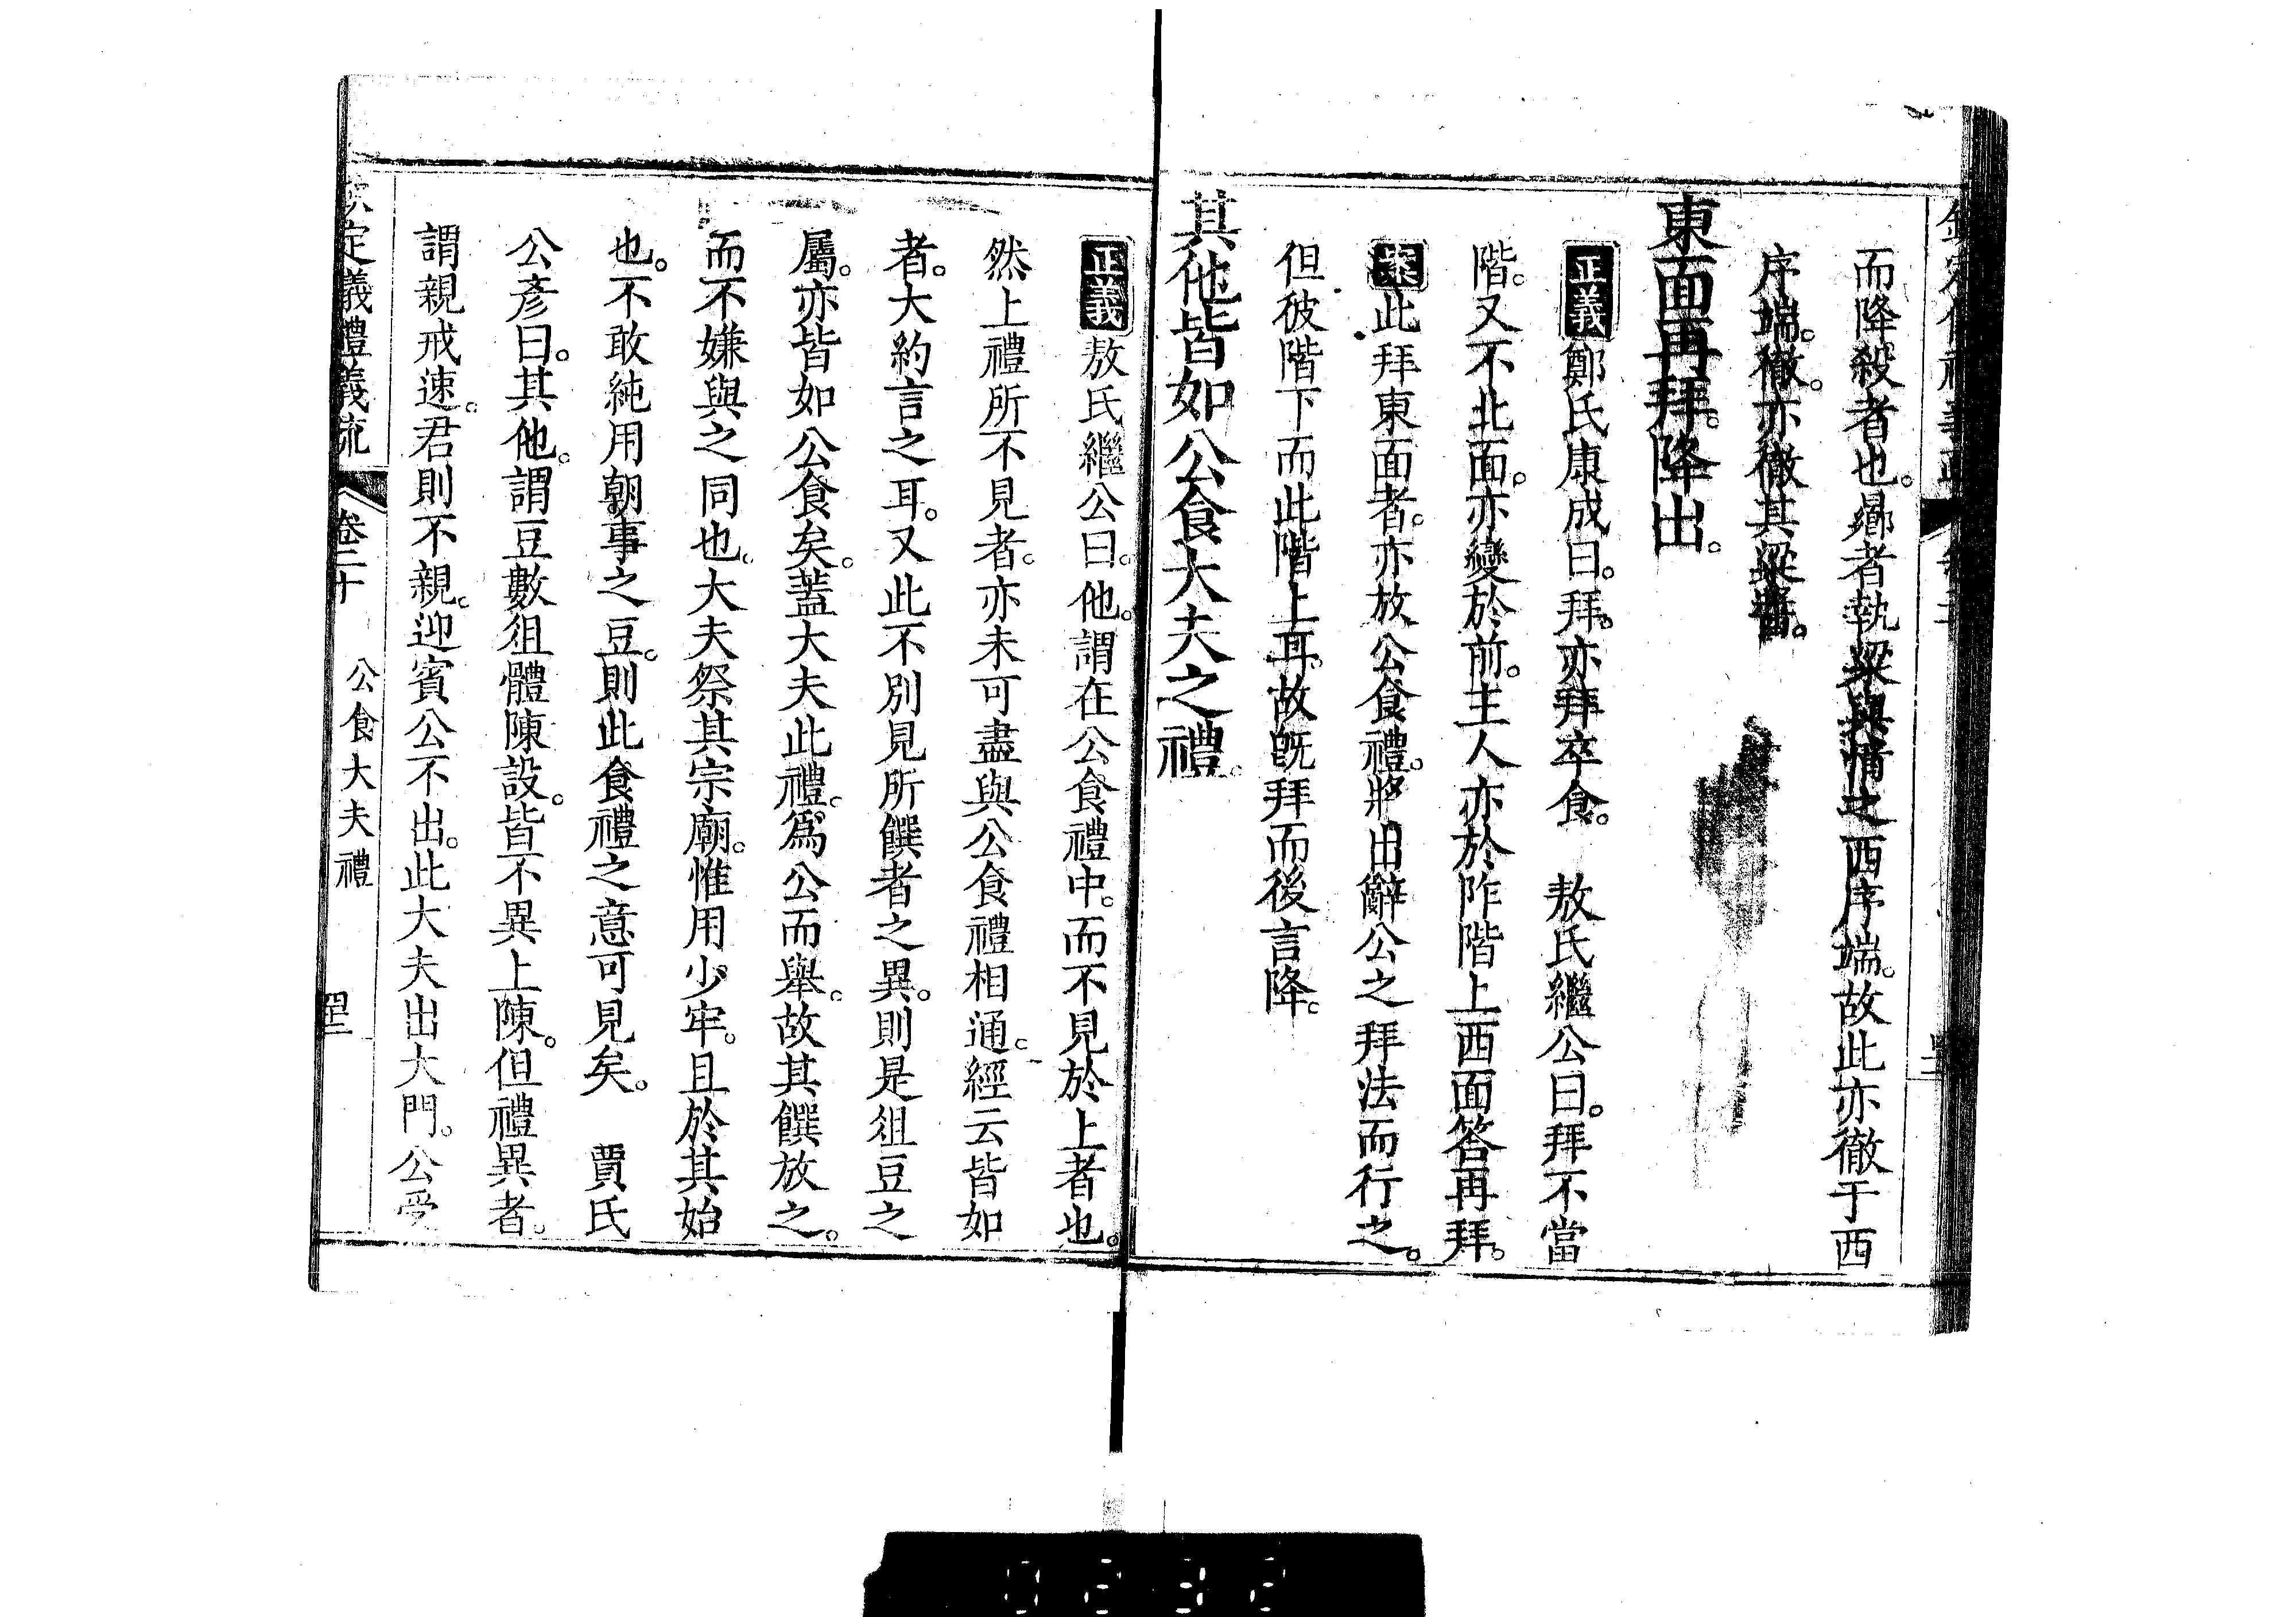 而降殺者也。鄉者執粱與湆之西序端。故此亦徹于西
序端。徹。亦徹其粱醬。
東面再拜。降出。
正義鄭氏康成曰。拜。亦拜卒食。 敖氏繼公曰。拜不當
階。又不北面。亦變於前。主人亦於阼階上西面答再拜。
案此拜東面者。亦放公食禮。將出辭公之拜法而行之。
但彼階下而此階上耳。故旣拜而後言降。
其他皆如公食大夫之禮。
正義敖氏繼公曰。他。謂在公食禮中。而不見於上者也。
然上禮所不見者。亦未可盡與公食禮相通。經云皆如
者。大約言之耳。又此不別見所饌者之異。則是俎豆之
屬。亦皆如公食矣。蓋大夫此禮。爲公而舉。故其饌放之。
而不嫌與之同也。大夫祭其宗廟。惟用少牢。且於其始
也。不敢純用朝事之豆。則此食禮之意可見矣。 賈氏
公彥曰。其他。謂豆數俎體陳設。皆不異上陳。但禮異者。
謂親戒速。君則不親。迎賓公不出。此大夫出大門。公受
欽定義禮義疏 卷二十 公食大夫禮